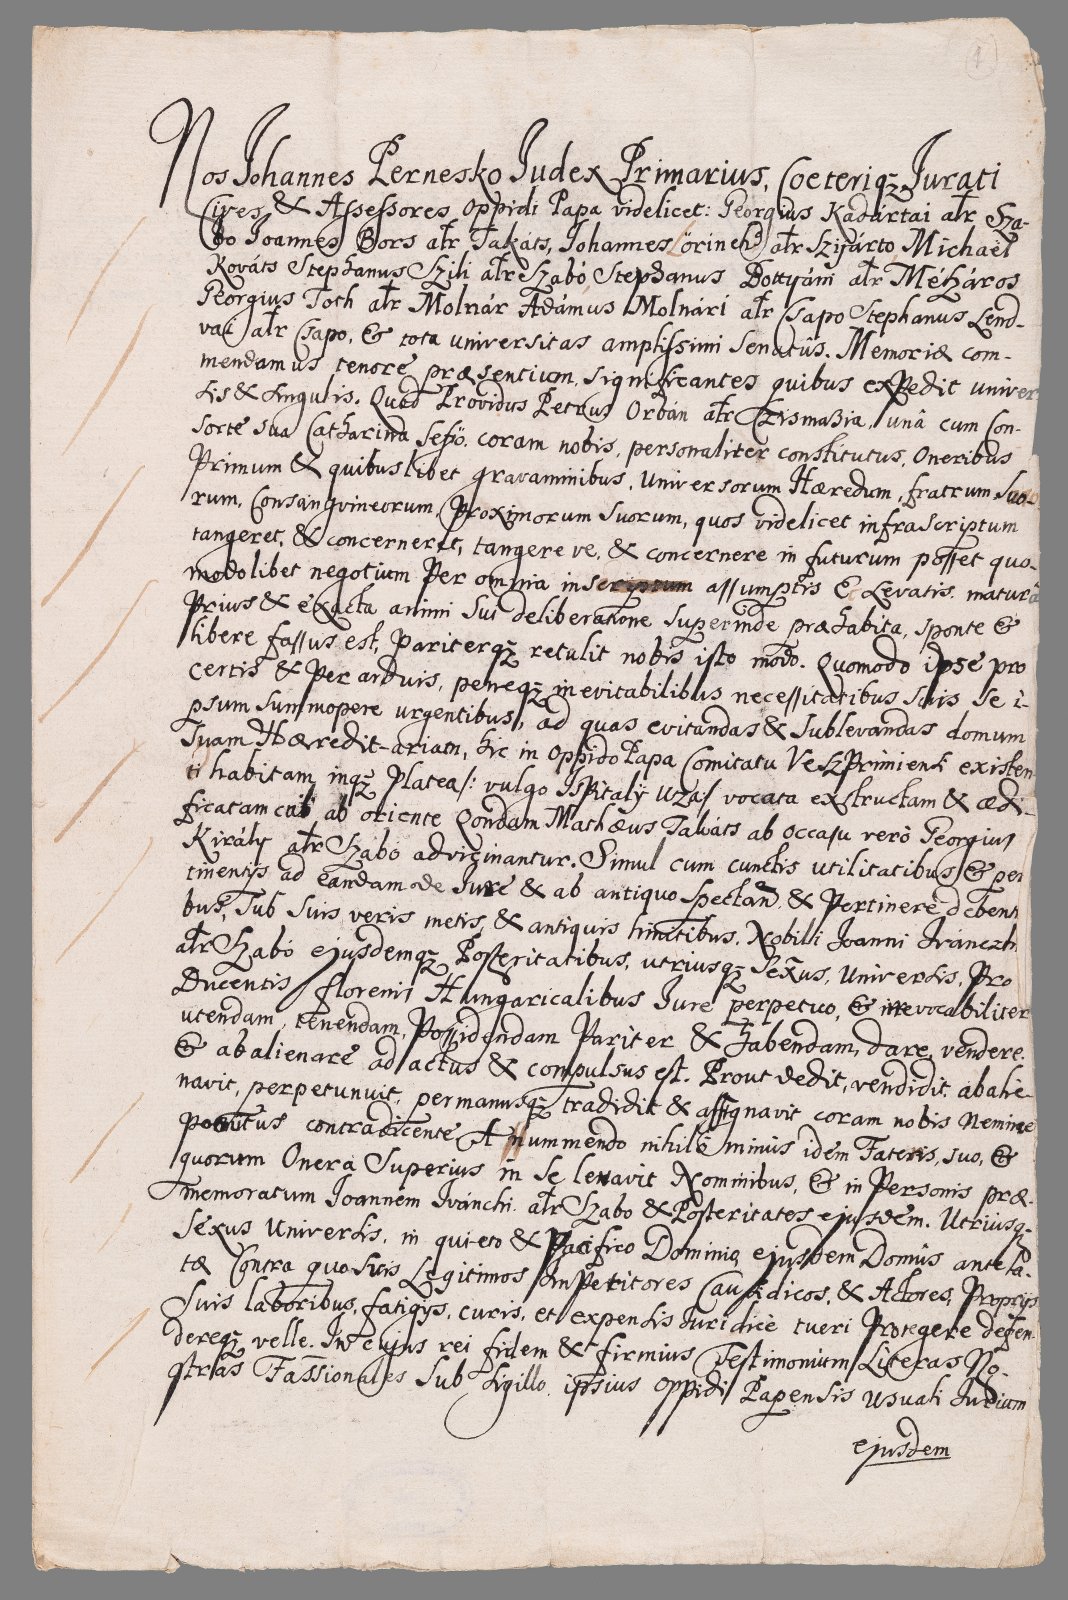 1
Nos Johannes Pernesko Judex Primarius, Coeteriqz Jurati
Cives & Assessores Oppidi Papa videlicet: Georgius Kadártai alr Sza-
bo Joannes Bors alr Takáts, Johannes Lörincz alr Szijárto, Michael
Kováts Stephanus Szili alr Szabó, Stephanus Bottyáni alr Mészáros
Georgius Toth alr Molnár Adámus Molnári alr Csapo Stephanus Lend-
vai alr Csapo, & tota universitas amplissimi Senatûs. Memoriæ com-
mendamus tenore præsentium, significantes quibus expedit univer
sis & singulis. Quod Providus Petrus Orbán alr Csismazia, unâ cum Con-
sorte sua Catharina coram nobis, personaliter constitutus, Oneribus
Primum & quibuslibet gravaminibus, Universorum Hæredum, fratrum Suo-
rum, Consangvineorum, Proximorum suorum, quos videlicet infrascriptum
tangeret, & concerneret, tangere ve, & concernere in futurum posset quo-
modolibet negotium Per omnia in assumptis & Levatis. maturâ
Prius & exacta animi sui deliberatione superinde præhabita, sponte &
libere fassus est, Pariterqz retulit nobis isto modo. Quomodo ipse pro
certis & Per arduis, peneqz inevitabilibus necessitatibus suis se i-
psum summopere urgentibus, ad quas evitandas & sublevandas domum
suam Hæredit-ariam, hic in Oppido Papa Comitatu Veszprimiensi existen
ti habitam, inqz Platea /: vulgo Ispitaly Uza/ vocata exstructam & ædi-
ficatam cui ab oriente Qondam Mathæus Takáts ab occasu verò Georgius
Király alr Szabó advicinantur. Simul cum cunctis utilitatibus & per
tinensys ad eandam de Jure & ab antiquo spectan. & Pertinere deben
bus, sub suis veris metis, & antiquis limitibus. Nobili Joanni Ivánczh
alr Szabó ejusdemqz Posteritatibus, utriusqz Sexus, Universis, Pro
Ducentis florenis Hungaricalibus Jure perpetuo, & irrevocabiliter
utendam, tenendam, Possidendam Pariter & habendam, dare, vendere,
& abalienare adactus & compulsus est. Prout dedit, vendidit, abalie-
navit, perpetunuit, permanusqz tradidit & assignavit coram nobis Nemine
Penitus contradicente A nummendo nihilô minùs idem Fateris, suo, &
quorum Onera Superius in se levavit Nominibus, & in Personis præ-
memoratum Joannem Ivánchi alr Szabo & Posteritates ejusdem. Utriusqz
Sexus Universis, in qui-eto & Pacifico Dominio ejusdem Domûs antela-
tæ Contra quosvis Legitimos Impetitores Causidicos, & Actores, Proprys
Suis laboribus, fatigys, curis, et expensis Juridicè tueri Protegere defen-
dereqz velle. In cujus rei fidem & firmius Testimonium Literas No-
stras Fassionales sub Sigillo ipsius Oppidi Papensis usuali Jurium
ejusdem